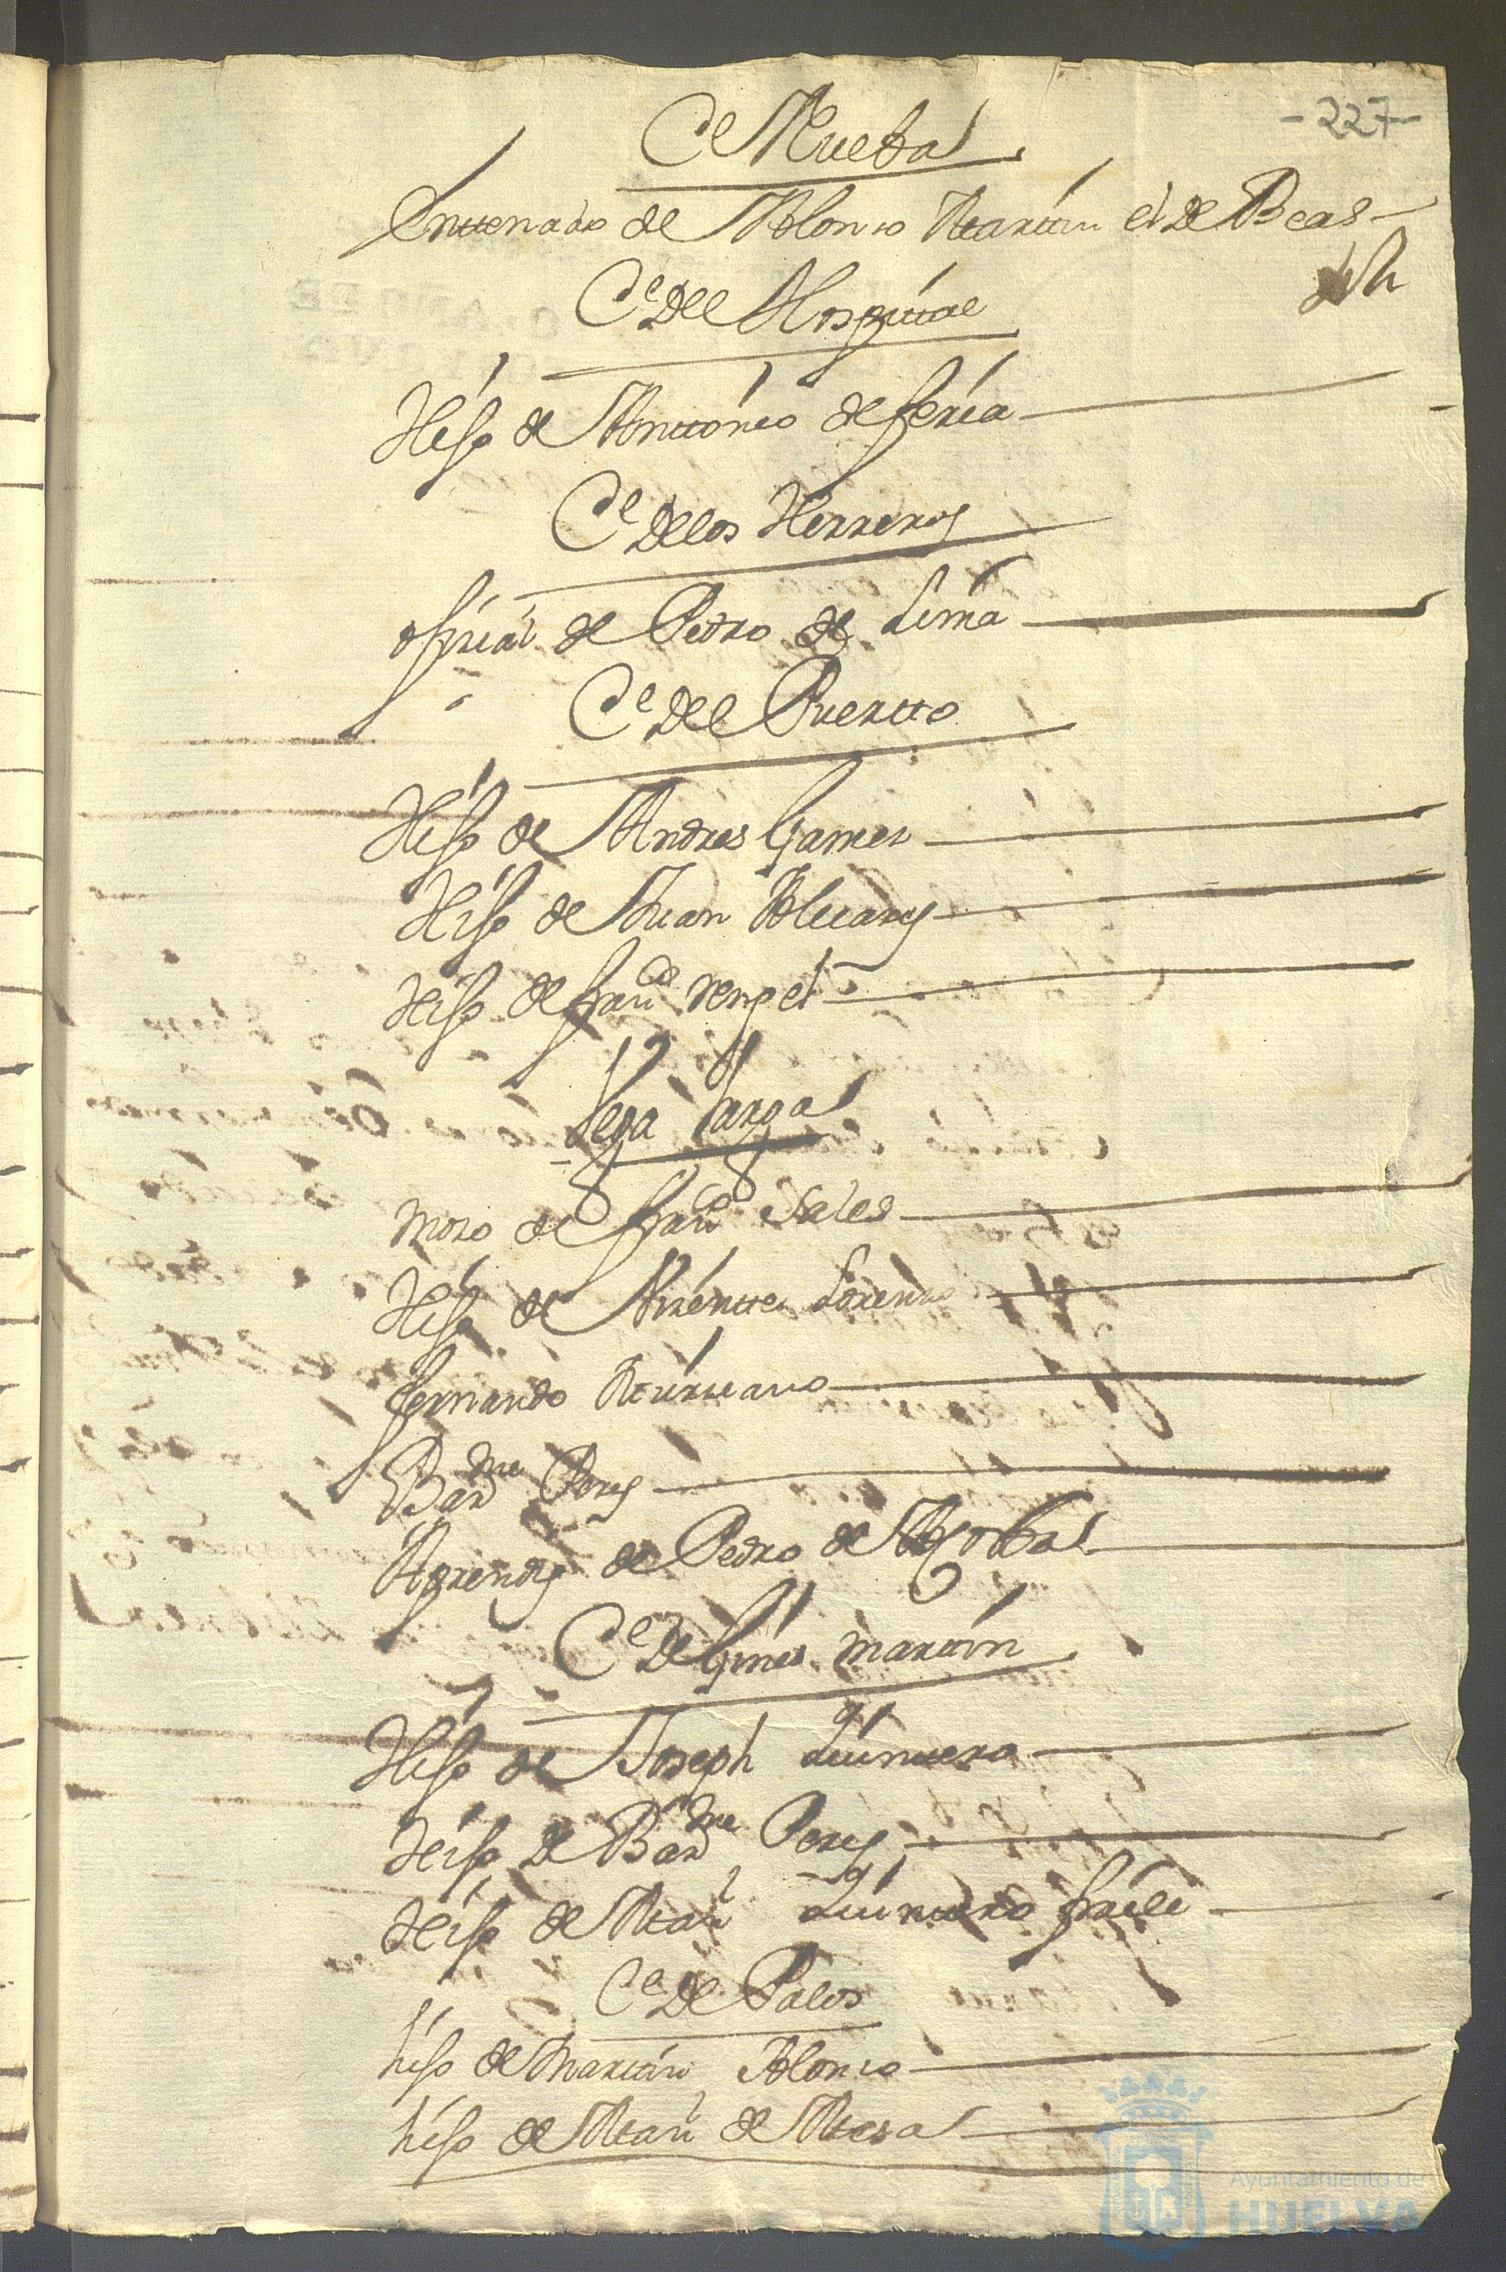 -227-
Ce Nueba
Entenado de Alonso Martin el de Beas
Ce Del Hospittal
Hijo de Anttonio de feria
Ce De los Herreros
ofizial de Pedro de Lima
Ce Del Puertto
Hijo de Andres Gomez
Hijo de Juan Alvares
Hijo de franco Rengel
Vega Larga
moso de franco Sales
Hijo de Vizentte Lorenzo
fernando
Barme Peres
Aprendis de Pedro de
Ce De Gines martin
Hijo de Joseph Quintero
Hijo de Barme Peres
Hijo de Man Quintero fraile
Ce De Palos
hijo de Martin Alonso
hijo de Man de Mesa
Ayuntamiento de
HUELVA